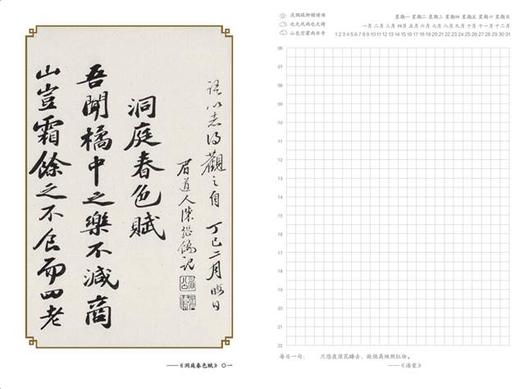 語以志得觀之自 丁巳二月晦日
眉道人陳繼儒記
洞庭春色賦
吾聞橘中之樂不減商
山豈霜餘之不食而四老
——《洞庭春色赋》 〇一
星期一 星期二 星期三 星期四 星期五 星期六 星期日
也无风雨也无晴 一月 二月 三月 四月 五月 六月 七月 八月 九月 十月 十一月 十二月
山色空蒙雨亦奇 1 2 3 4 5 6 7 8 9 10 11 12 13 14 15 16 17 18 19 20 21 22 23 24 25 26 27 28 29 30 31
06
07
08
09
10
11
12
13
14
15
16
17
18
19
20
21
22
每日一句： 只恐夜深花睡去，故烧高烛照红妆。
——《海棠》